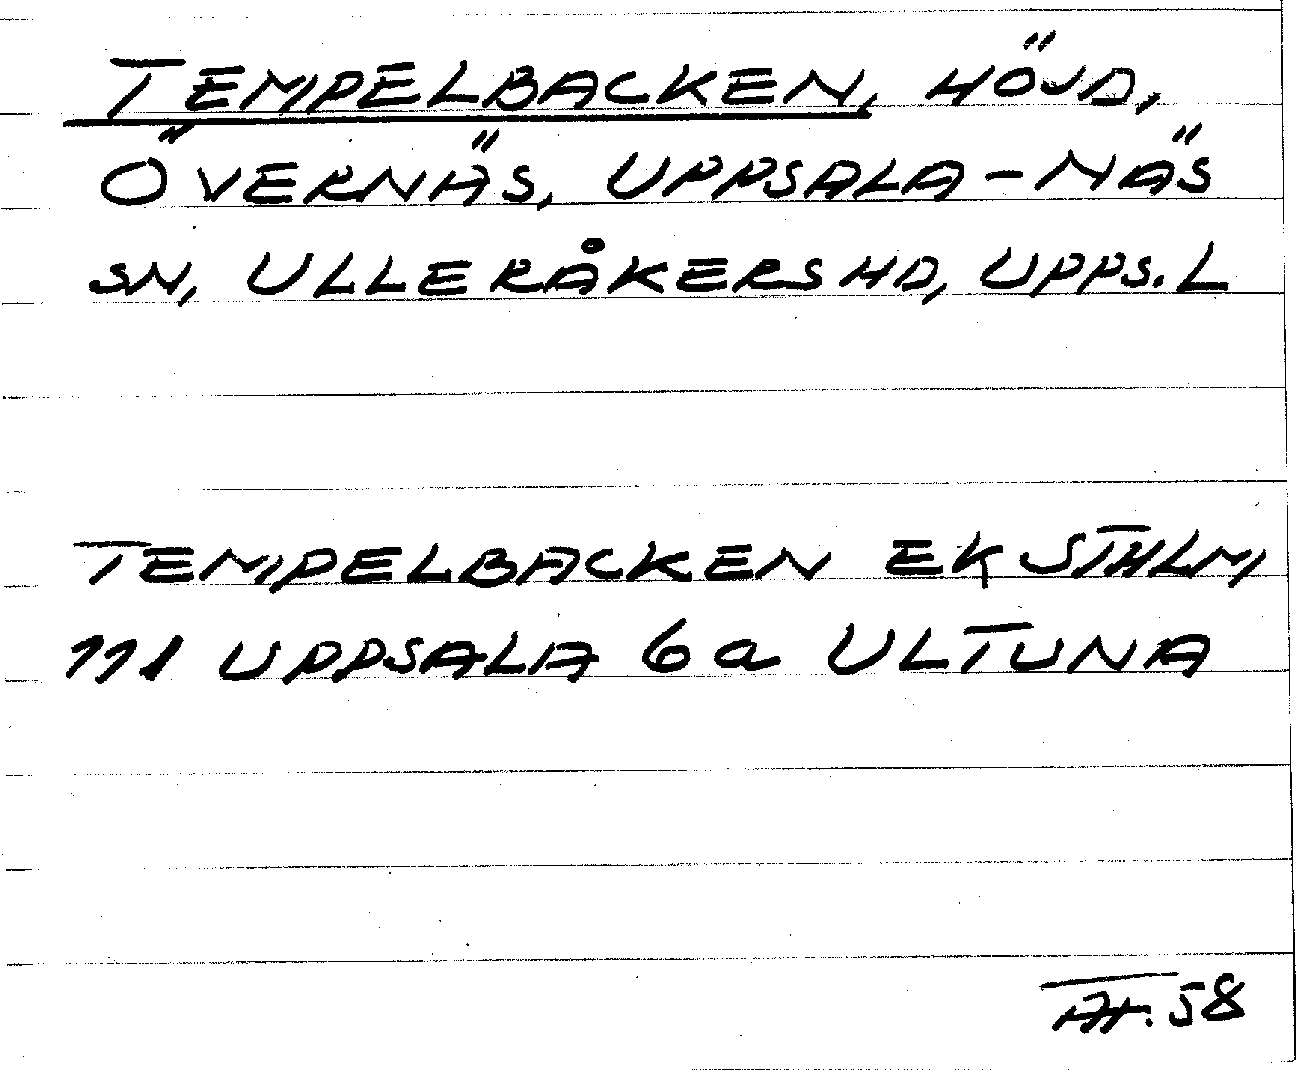 TEMPELBACKEN, HÖJD,
ÖVERNÄS, UPPSALA-NÄS
SN, ULLERÅKERS HD, UPPS. L
TEMPELBACKEN EK STHLM,
111 UPPSALA 6a ULTUNA
58